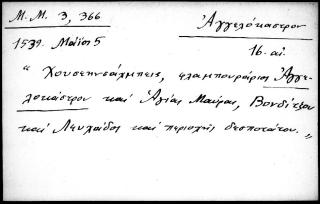 Μ.Μ. 3, 366 Ἀγγελόκαστρον
1539. Μαΐου 5 16. αἰ.
" Χουσεηνσάχμπεις, φλαμπουράριος Ἀγγε-
λοκάστρου καὶ Ἁγίας Μαύρας, Βονδίτζου
καὶ Λευκάδος καὶ περιοχῆς δεσποτάτου. "